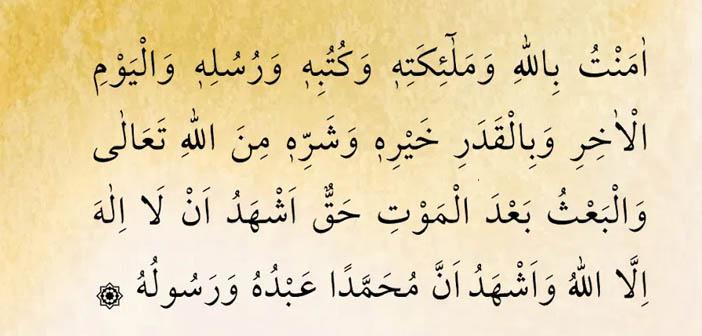 اٰمَنْتُ بِاللّٰهِ وَمَلٰٓئِكَتِهٖ وَكُتُبِهٖ وَرُسُلِهٖ وَالْيَوْمِ
الْاٰخِرِ وَبِالْقَدَرِ خَيْرِهٖ وَشَرِّهٖ مِنَ اللّٰهِ تَعَالٰى
وَالْبَعْثُ بَعْدَ الْمَوْتِ حَقٌّ اَشْهَدُ اَنْ لَا اِلٰهَ
اِلَّا اللّٰهُ وَاَشْهَدُ اَنَّ مُحَمَّدًا عَبْدُهُ وَرَسُولُهُ